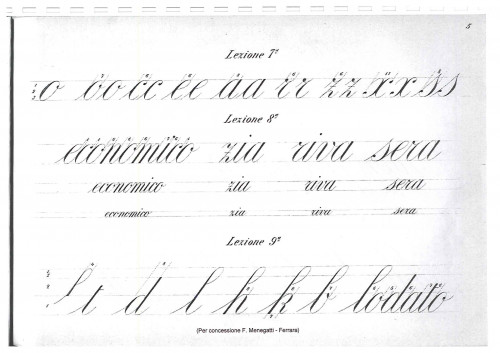 5
Lezione 7ª
o oo cc ee aa rr zz xx ss
Lezione 8ª
economico zia riva sera
economico zia riva sera
economico zia riva sera
Lezione 9ª
t d l h k b lodato
(Per concessione F. Menegatti - Ferrara)